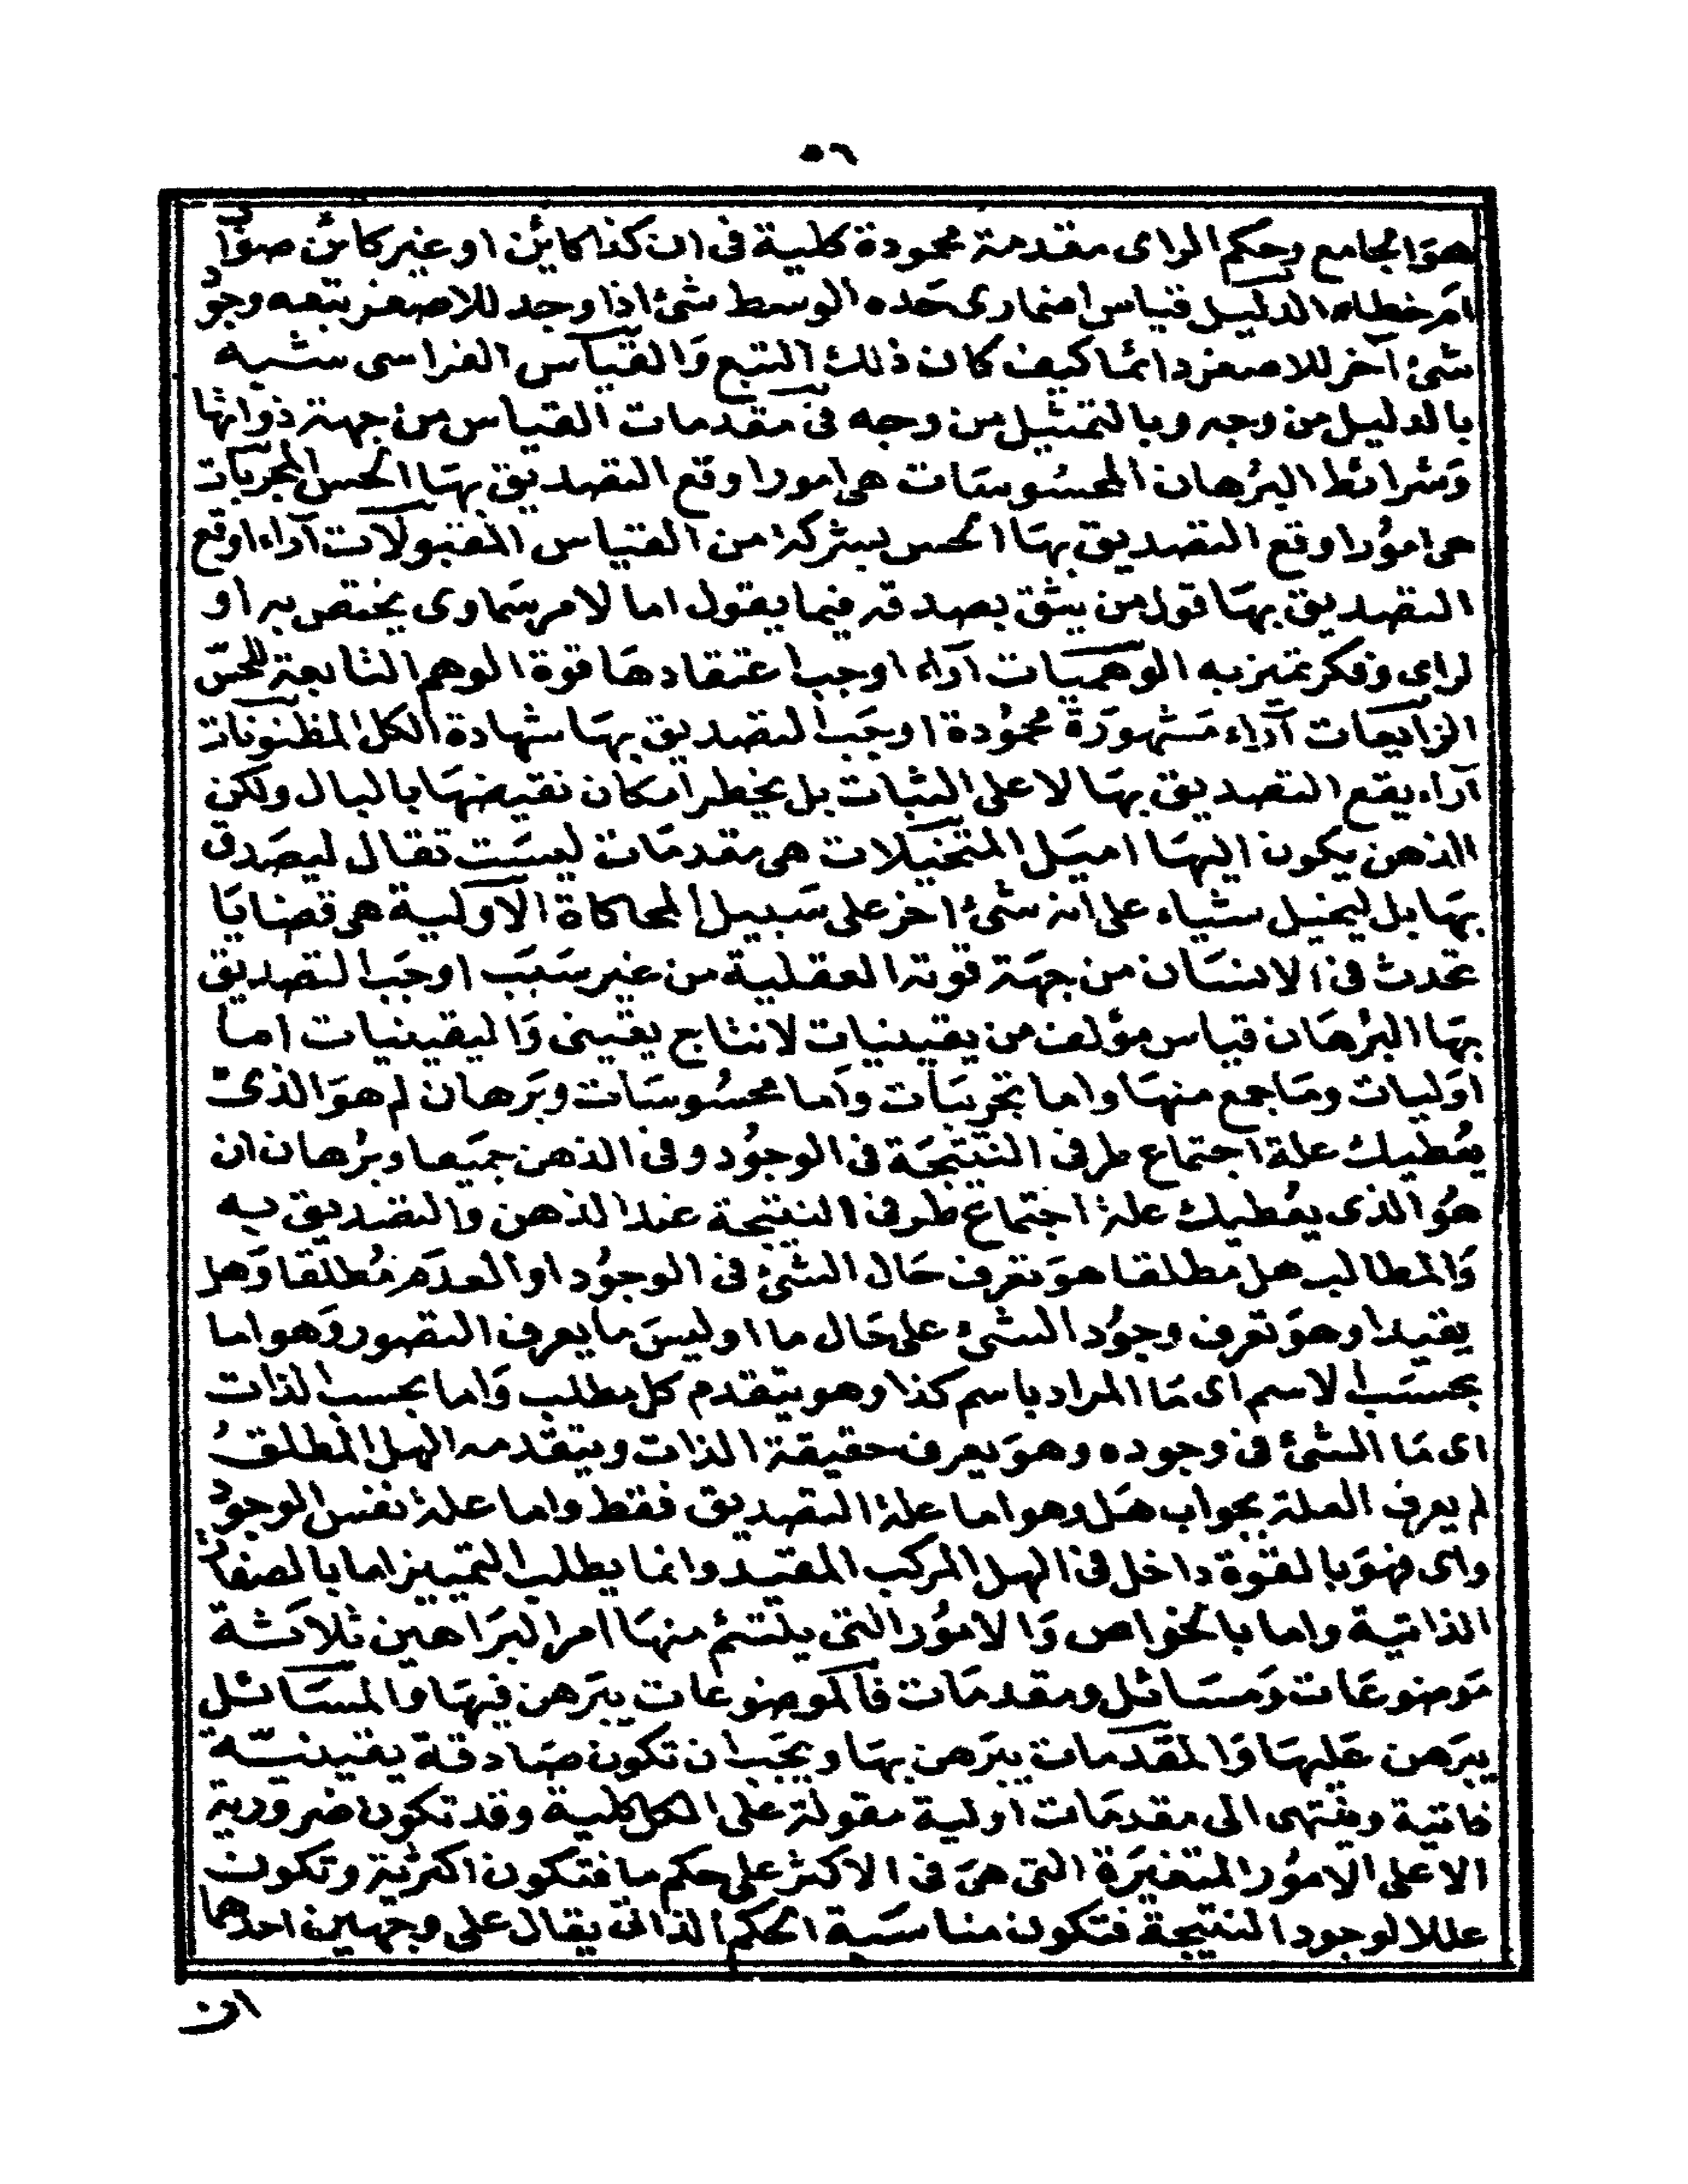 ٥٦
هو الجامع وحكم الراى مقدمة محمودة كلية فى ان كذا كائن او غير كائن صواب
ام خطاء الدليل قياس اضمارى حده الوسط شئ اذا وجد للاصغر يتبعه وجود
شئ آخر للاصغر دائما كيف كان ذلك التبع والقياس الفراسى شبيه
بالدليل من وجه وبالتمثيل من وجه فى مقدمات القياس من جهة ذواتها
وشرائط البرهان المحسوسات هى امور اوقع التصديق بها الحس المجربات
هى امور اوقع التصديق بها الحس بشركة من القياس المقبولات آراء اوقع
التصديق بها قول من يثق بصدقه فيما يقول اما لامر سماوى يختص به او
لراى وفكر تميز به الوهميات آراء اوجب اعتقادها قوة الوهم التابعة للحس
الزايعات آراء مشهورة محمودة اوجب التصديق بها شهادة الكل المظنونات
آراء يقع التصديق بها لا على الثبات بل يخطر امكان نقيضها بالبال ولكن
الذهن يكون اليها اميل المتخيلات هى مقدمات ليست تقال ليصدق
بها بل ليخيل شياء على انه شئ اخر على سبيل المحاكاة الاولية هى قضايا
تحدث فى الانسان من جهة قوته العقلية من غير سبب اوجب التصديق
بها البرهان قياس مؤلف من يقينيات لانتاج يقينى واليقينيات اما
اوليات وما جمع منها واما تجربيات واما محسوسات وبرهان لم هو الذى
يعطيك علة اجتماع طرفى النتيجة فى الوجود وفى الذهن جميعا وبرهان ان
هو الذى يعطيك علة اجتماع طرفى النتيجة عند الذهن والتصديق به
والمطالب هل مطلقا هو تعرف حال الشئ فى الوجود او العدم مطلقا وهل
يقيدا وهو تعرف وجود الشئ على حال ما او ليس ما يعرف التصور وهو اما
بحسب الاسم اى ما المراد باسم كذا وهو يتقدم كل مطلب واما بحسب الذات
اى ما الشئ فى وجوده وهو يعرف حقيقة الذات ويتقدمه الهل المطلق
لم يعرف العلة بجواب هل وهو اما علة التصديق فقط واما علة نفس الوجود
واى فهو بالقوة داخل فى الهل المركب المقيد وانما يطلب التمييز اما بالصفات
الذاتية واما بالخواص والامور التى يلتئم منها امر البراهين ثلاثة
موضوعات ومسائل ومقدمات فالموضوعات يبرهن فيها والمسائل
يبرهن عليها والمقدمات يبرهن بها ويجب ان تكون صادقة يقينية
ذاتية وينتهى الى مقدمات اولية مقولة على الكل كلية وقد تكون ضرورية
الا على الامور المتغيرة التى هى فى الاكثر على حكم ما فتكون اكثرية وتكون
عللا لوجود النتيجة فتكون مناسبة الحكم الذاتى يقال على وجهين احدهما
ان